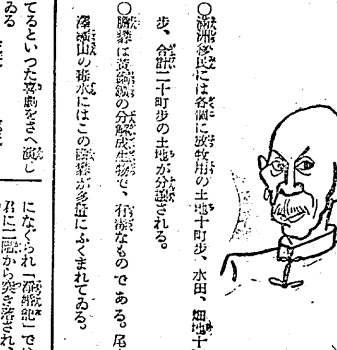 ○満洲移民には各個に放牧用の土地十町歩、水田、畑地十
歩、合計二十町歩の土地が分譲される。
○膽礬は黄銅鉱の分解成生物で、有毒なものである。尾
澤銅山の排水にはこの膽礬が多量にふくまれてゐる。
てるといつた喜劇をさへ演じ
ゐる
になぐられ「 」で
君に二階から突き落され、